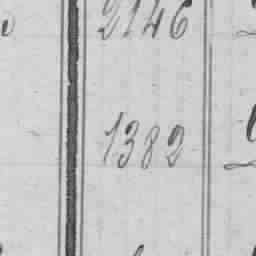 2146
1382